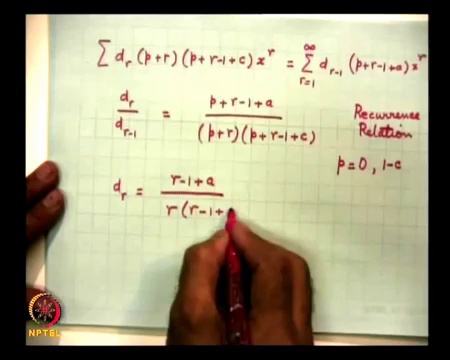 ∑ d_r (p+r) (p+r-1+c) x^r = ∑_{r=1}^{∞} d_{r-1} (p+r-1+a) x^r
d_r / d_{r-1} = (p+r-1+a) / ((p+r) (p+r-1+c))
Recurrence
Relation
p=0, 1-c
d_r = (r-1+a) / (r (r-1+
NPTEL